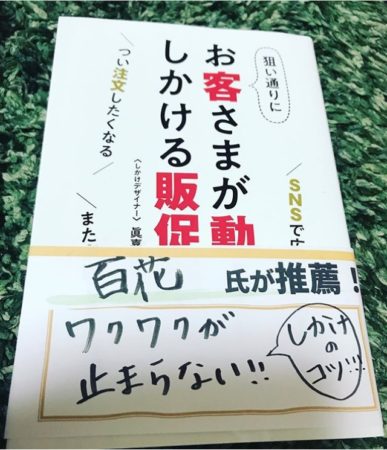 狙い通りに
お客さまが動
しかける販促
〈しかけデザイナー〉眞喜
つい注文したくなる
SNSで
また
百花 氏が推薦！
ワクワクが
止まらない!!
しかけ
の
コツ!!!